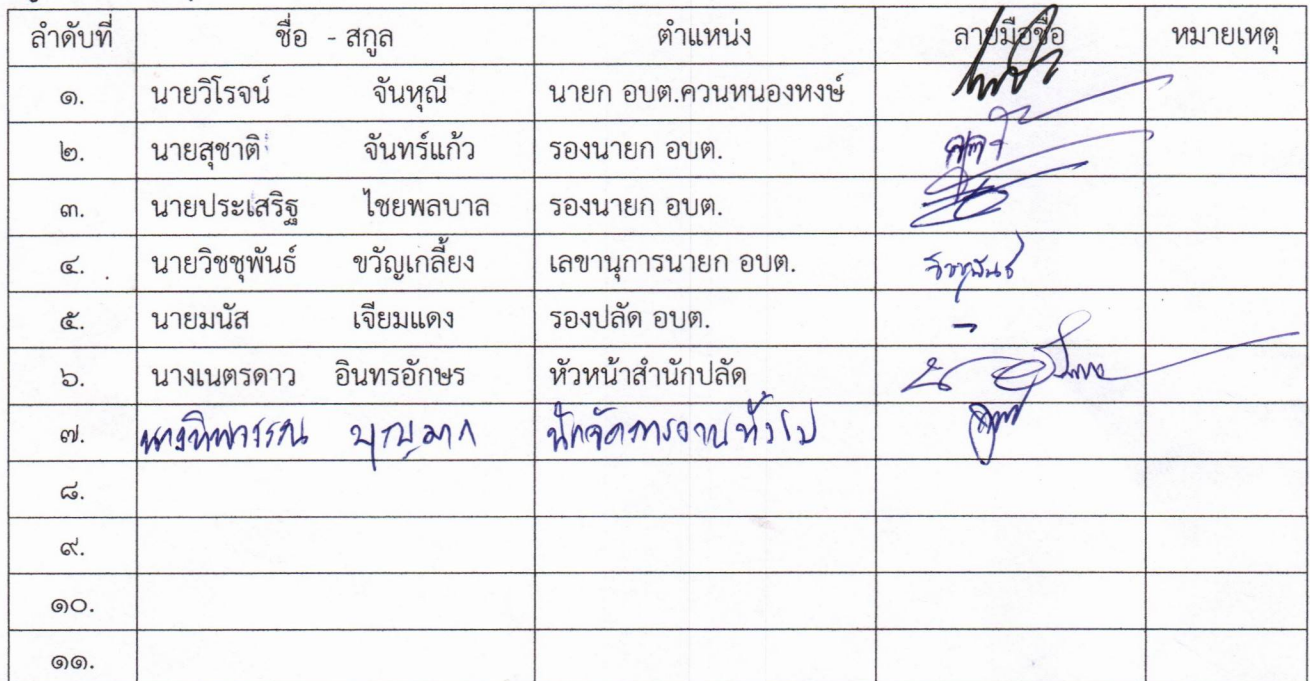 ลำดับที่ ชื่อ - สกูล ตำแหน่ง ลายมือชื่อ หมายเหตุ
๑. นายวิโรจน์ จันหุณี นายก อบต.ควนหนองหงษ์
๒. นายสุชาติ จันทร์แก้ว รองนายก อบต.
๓. นายประเสริฐ ไชยพลบาล รองนายก อบต.
๔. นายวิชชุพันธ์ ขวัญเกลี้ยง เลขานุการนายก อบต. วิชชุพันธ์
๕. นายมนัส เจียมแดง รองปลัด อบต. -
๖. นางเนตรดาว อินทรอักษร หัวหน้าสำนักปลัด
๗. นางทิพวรรณ บุญมาก นักจัดการงานทั่วไป
๘.
๙.
๑๐.
๑๑.